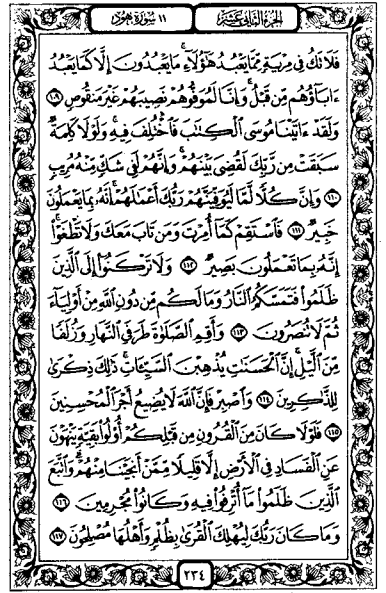 الجزء الثاني عشر
١١ سورة هود
فَلَا تَكُ فِي مِرْيَةٍ مِّمَّا يَعْبُدُ هَٰؤُلَاءِ ۚ مَا يَعْبُدُونَ إِلَّا كَمَا يَعْبُدُ
ءَابَاؤُهُم مِّن قَبْلُ ۚ وَإِنَّا لَمُوَفُّوهُمْ نَصِيبَهُمْ غَيْرَ مَنقُوصٍ ١٠٩
وَلَقَدْ ءَاتَيْنَا مُوسَى الْكِتَٰبَ فَاخْتُلِفَ فِيهِ ۚ وَلَوْلَا كَلِمَةٌ
سَبَقَتْ مِن رَّبِّكَ لَقُضِيَ بَيْنَهُمْ ۚ وَإِنَّهُمْ لَفِي شَكٍّ مِّنْهُ مُرِيبٍ
١١٠ وَإِنَّ كُلًّا لَّمَّا لَيُوَفِّيَنَّهُمْ رَبُّكَ أَعْمَٰلَهُمْ ۚ إِنَّهُ بِمَا يَعْمَلُونَ
خَبِيرٌ ١١١ فَاسْتَقِمْ كَمَا أُمِرْتَ وَمَن تَابَ مَعَكَ وَلَا تَطْغَوْا ۚ
إِنَّهُ بِمَا تَعْمَلُونَ بَصِيرٌ ١١٢ وَلَا تَرْكَنُوا إِلَى الَّذِينَ
ظَلَمُوا فَتَمَسَّكُمُ النَّارُ وَمَا لَكُم مِّن دُونِ اللَّهِ مِنْ أَوْلِيَاءَ
ثُمَّ لَا تُنصَرُونَ ١١٣ وَأَقِمِ الصَّلَوٰةَ طَرَفَيِ النَّهَارِ وَزُلَفًا
مِّنَ اللَّيْلِ ۚ إِنَّ الْحَسَنَٰتِ يُذْهِبْنَ السَّيِّـَٔاتِ ۚ ذَٰلِكَ ذِكْرَىٰ
لِلذَّٰكِرِينَ ١١٤ وَاصْبِرْ فَإِنَّ اللَّهَ لَا يُضِيعُ أَجْرَ الْمُحْسِنِينَ
١١٥ فَلَوْلَا كَانَ مِنَ الْقُرُونِ مِن قَبْلِكُمْ أُولُوا بَقِيَّةٍ يَنْهَوْنَ
عَنِ الْفَسَادِ فِي الْأَرْضِ إِلَّا قَلِيلًا مِّمَّنْ أَنجَيْنَا مِنْهُمْ ۗ وَاتَّبَعَ
الَّذِينَ ظَلَمُوا مَا أُتْرِفُوا فِيهِ وَكَانُوا مُجْرِمِينَ ١١٦
وَمَا كَانَ رَبُّكَ لِيُهْلِكَ الْقُرَىٰ بِظُلْمٍ وَأَهْلُهَا مُصْلِحُونَ ١١٧
٢٣٤